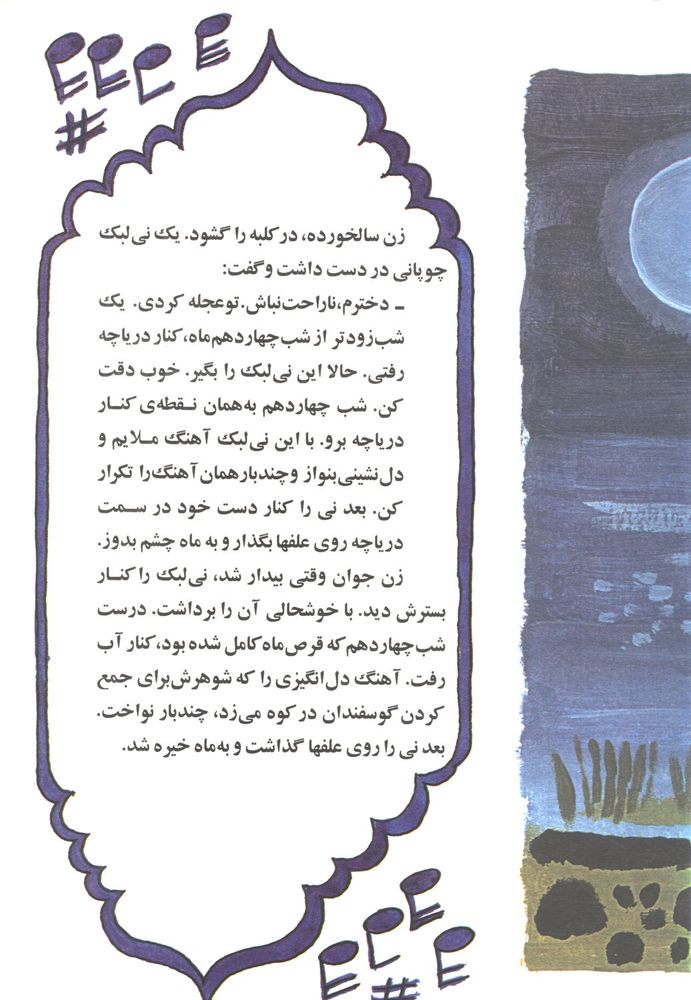 زن سالخورده، در کلبه را گشود. یک نی‌لبک
چوپانی در دست داشت و گفت:
ـ دخترم، ناراحت نباش. تو عجله کردی. یک
شب زودتر از شب چهاردهم ماه، کنار دریاچه
رفتی. حالا این نی‌لبک را بگیر. خوب دقت
کن. شب چهاردهم به همان نقطه‌ی کنار
دریاچه برو. با این نی‌لبک آهنگ ملایم و
دل‌نشینی بنواز و چندبار همان آهنگ را تکرار
کن. بعد نی را کنار دست خود در سمت
دریاچه روی علفها بگذار و به ماه چشم بدوز.
زن جوان وقتی بیدار شد، نی‌لبک را کنار
بسترش دید. با خوشحالی آن را برداشت. درست
شب چهاردهم که قرص ماه کامل شده بود، کنار آب
رفت. آهنگ دل‌انگیزی را که شوهرش برای جمع
کردن گوسفندان در کوه می‌زد، چندبار نواخت.
بعد نی را روی علفها گذاشت و به ماه خیره شد.